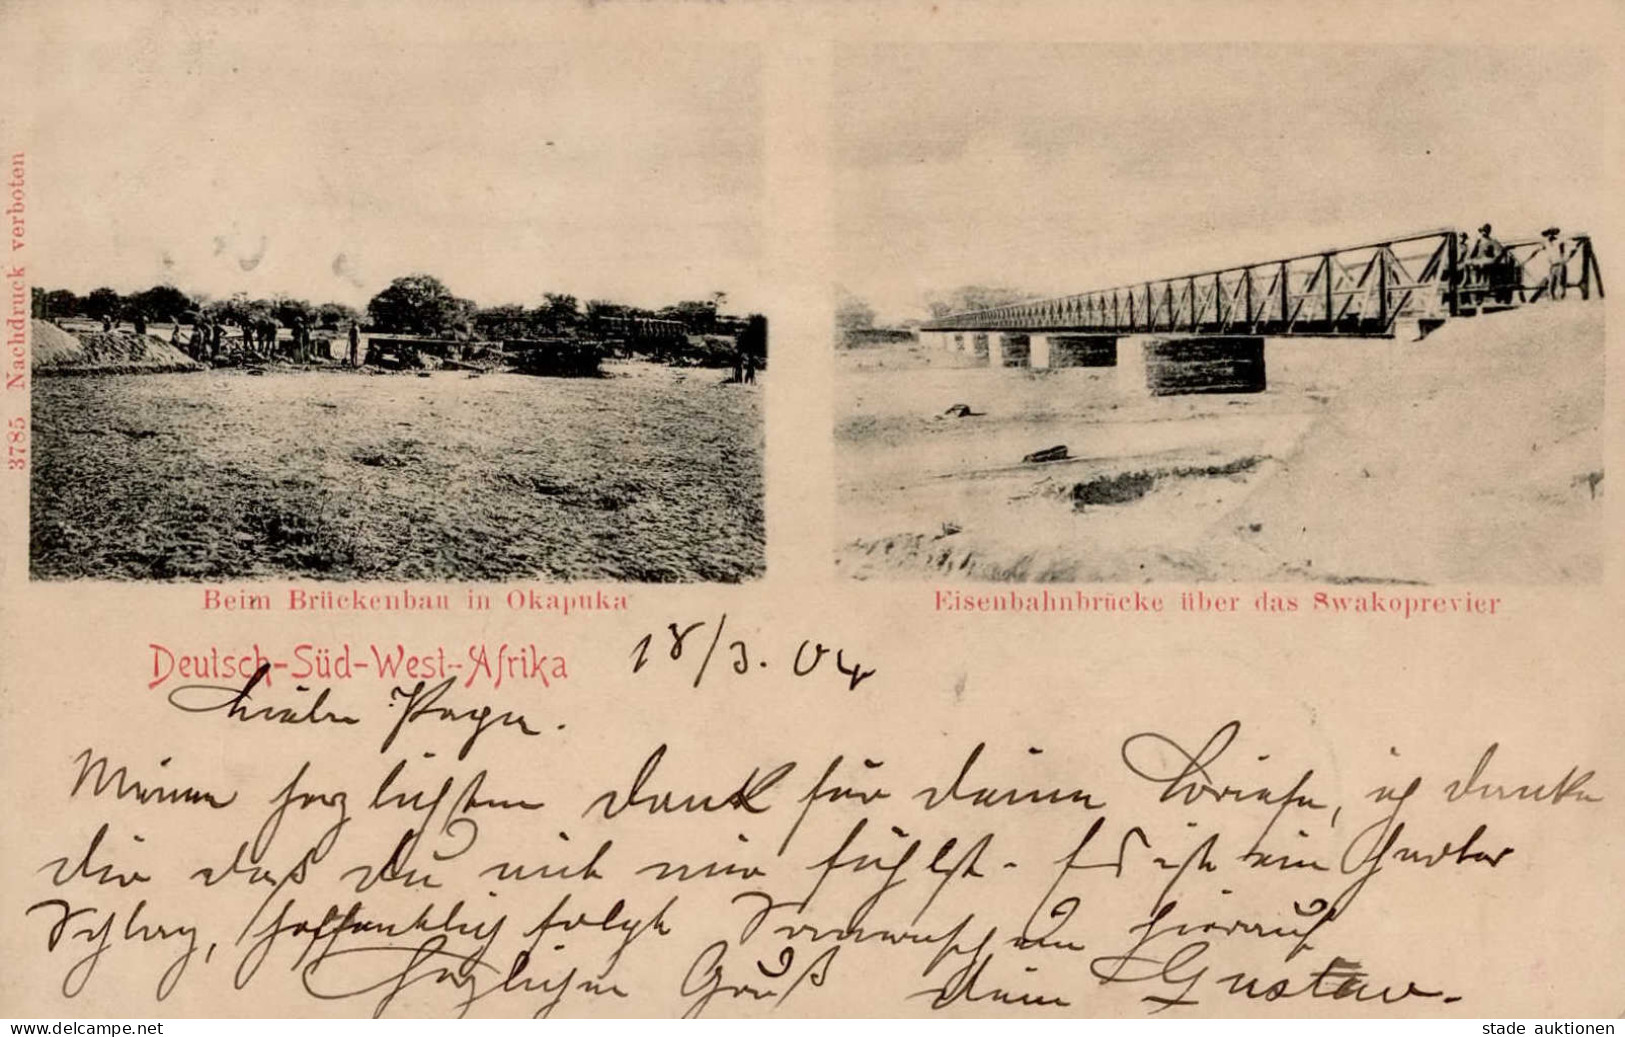 3785 Nachdruck verboten
Beim Brückenbau in Okapuka
Eisenbahnbrücke über das Swakoprevier
Deutsch-Süd-West-Afrika
18/3. 04
Meinen herzlichsten Dank für deine Briefe, ich danke
dir daß du mit mir fühlst. Es ist ein harter
Schlag, hoffentlich folgt Sonnenschein hierauf
Herzlichen Gruß dein Gustav.
www.delcampe.net
stade auktionen